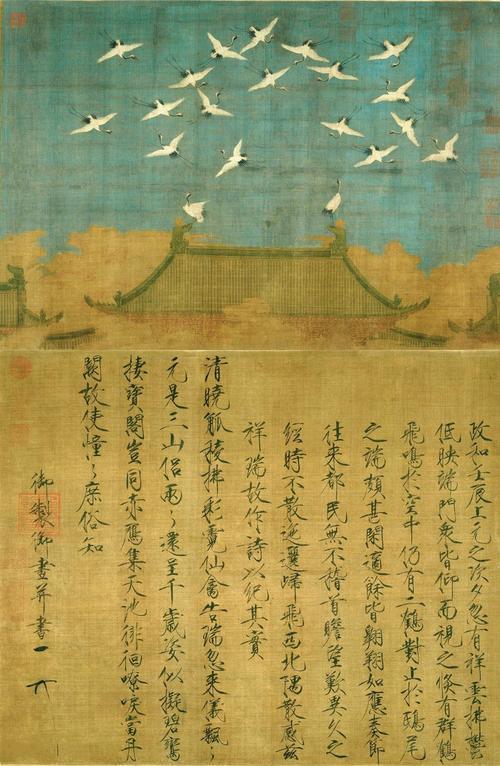 政和壬辰上元之次夕忽有祥雲拂鬱
低映端門衆皆仰而視之倏有群鶴
飛鳴於空中仍有二鶴對止於鴟尾
之端頗甚閒適餘皆翱翔如應奏節
往來都民無不稽首瞻望歎異久之
經時不散迤邐歸飛西北隅散感兹
祥瑞故作詩以紀其實
清曉觚稜拂彩霓仙禽告瑞忽來儀飄〻
元是三山侶兩〻還呈千歲姿似擬碧鸞
棲寶閣豈同赤鴈集天池徘徊嘹唳當丹
闕故使憧〻庶俗知
御製御畫并書